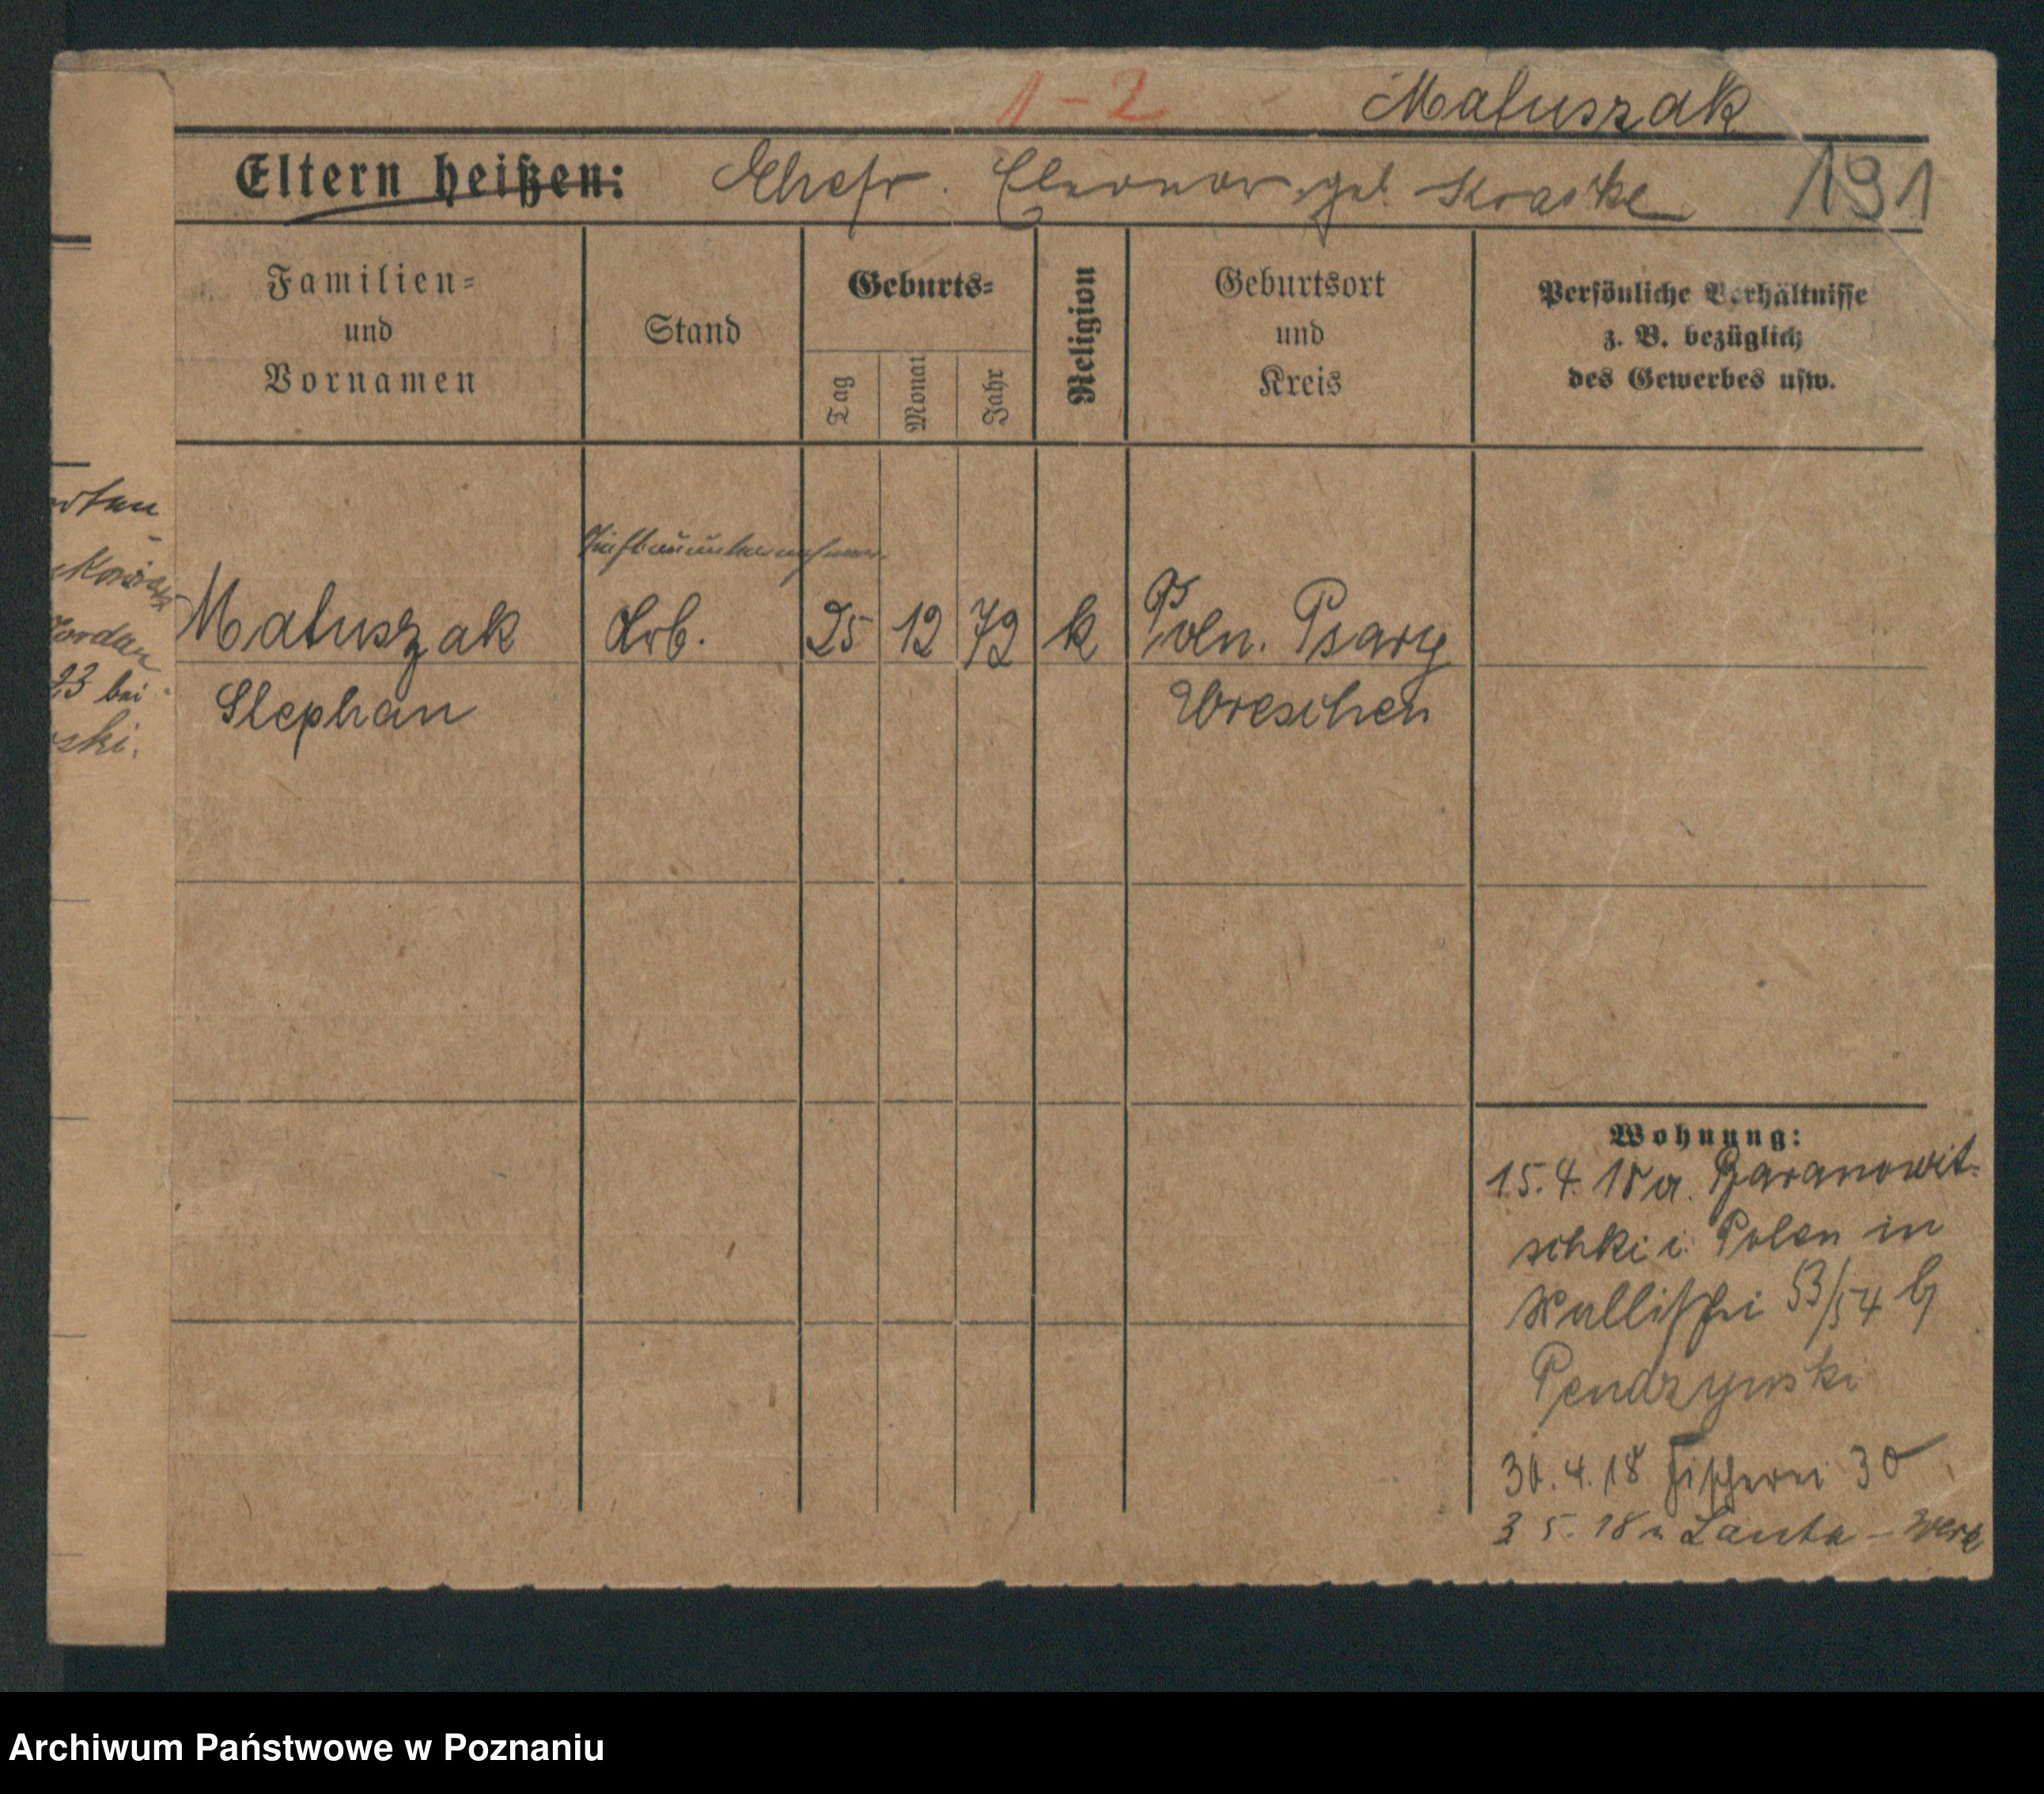 1-2 Matuszak
Eltern heißen: Ehefr. Eleonor. geb. Kraske 191
Familien=
und
Vornamen
Stand
Geburts=
Tag
Monat
Jahr
Religion
Geburtsort
und
Kreis
Persönliche Verhältnisse
z. B. bezüglich
des Gewerbes usw.
Tiefbauunternehmer
Matuszak Arb. 25 12 72 k Poln. Psary
Stephan Wreschen
Wohnung:
15.4.18 a. Baranowit-
schki i. Polen in
Wallischei 53/54 b
Pendzynski
30.4.18 Fischerei 30
3 5. 18 n Lauta - Werk
rdan
23 bei
ski.
Archiwum Państwowe w Poznaniu